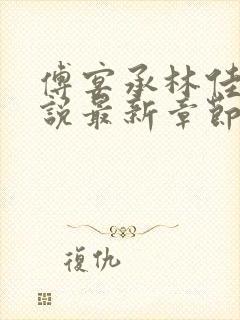 傅宴承林佳
說最新章節
復仇